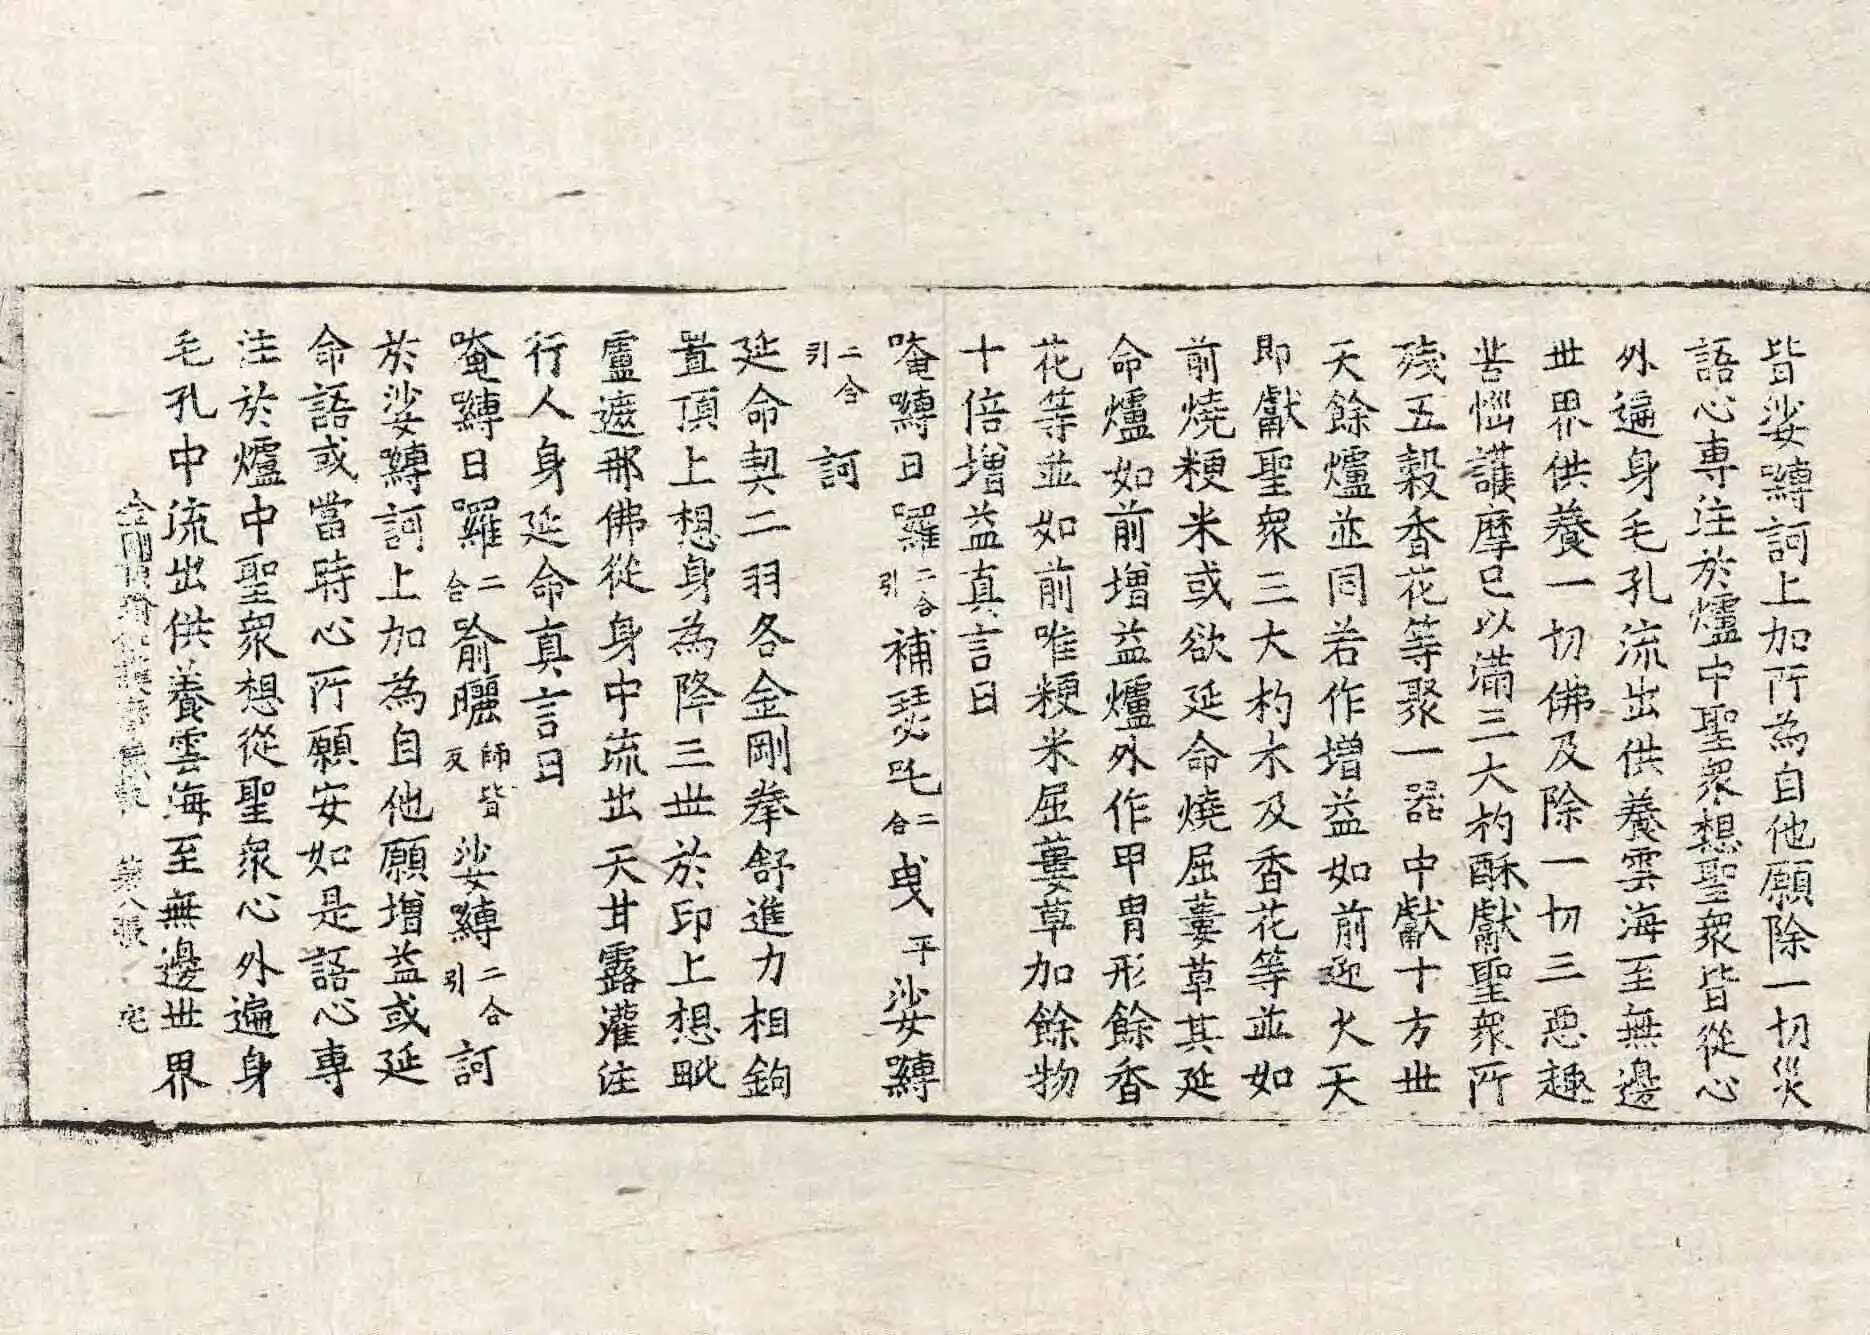 皆娑嚩訶上加所為自他願除一切災
語心專注於爐中聖衆想聖衆皆從心
外遍身毛孔流出供養雲海至無邊
世界供養一切佛及除一切三惡趣
苦惱護摩已以滿三大杓酥獻聖衆所
殘五穀香花等聚一器中獻十方世
天餘爐並同若作增益如前迎火天
即獻聖衆三大杓木及香花等並如
前燒粳米或欲延命燒屈蔞草其延
命爐如前增益爐外作甲冑形餘香
花等並如前唯粳米屈蔞草加餘物
十倍增益真言曰
唵嚩日羅二合引補瑟吒二合曳平娑嚩
二合引訶
延命契二羽各金剛拳舒進力相鉤
置頂上想身為降三世於印上想毗
盧遮那佛從身中流出天甘露灌注
行人身延命真言曰
唵嚩日羅二合喻曬師皆反娑嚩二合引訶
於娑嚩訶上加為自他願增益或延
命語或當時心所願安如是語心專
注於爐中聖衆想從聖衆心外遍身
毛孔中流出供養雲海至無邊世界
金剛頂瑜伽護摩儀軌 第八張 宅